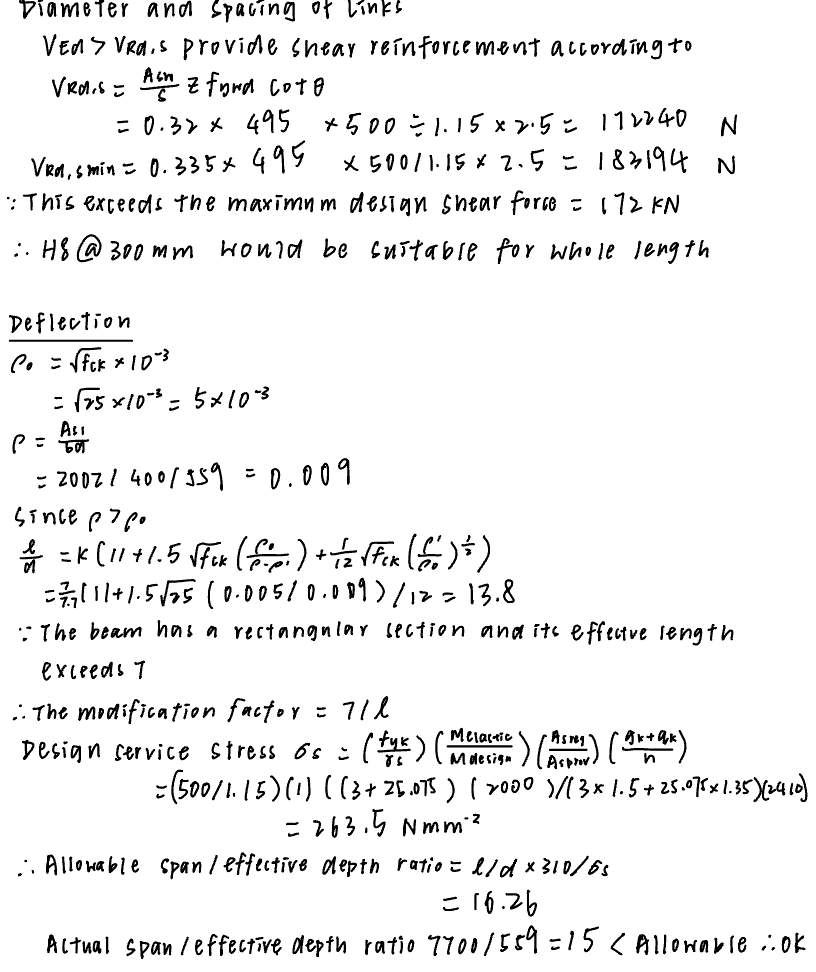 Diameter and spacing of links
VEd > VRd,s provide shear reinforcement according to
VRd,s = Asw/s z fywd cotθ
= 0.32 × 495 × 500 ÷ 1.15 × 2.5 = 172240 N
VRd,smin = 0.335 × 495 × 500/1.15 × 2.5 = 183194 N
∵ This exceeds the maximum design shear force = 172 kN
∴ H8 @ 300 mm would be suitable for whole length
Deflection
ρ₀ = √fck × 10⁻³
= √25 × 10⁻³ = 5 × 10⁻³
ρ = As1/bd
= 2002 / 400 / 559 = 0.009
Since ρ > ρ₀
l/d = K (11 + 1.5 √fck (ρ₀/ρ-ρ') + 1/12 √fck (ρ'/ρ₀)^½)
= 7/7.7 [11 + 1.5√25 (0.005/0.009) / 12 = 13.8
∵ The beam has a rectangular section and its effective length
exceeds 7
∴ The modification factor = 7/l
Design service stress σs = (fyk/γs) (Melastic/Mdesign) (Asreq/Asprov) (gk+qk/n)
= (500/1.15)(1) ((3 + 25.075) (2000)/(3 × 1.5 + 25.075 × 1.35)(2410)
= 263.5 Nmm⁻²
∴ Allowable span / effective depth ratio = l/d × 310/σs
= 16.26
Actual span / effective depth ratio 7700/559 = 15 < Allowable ∴ OK